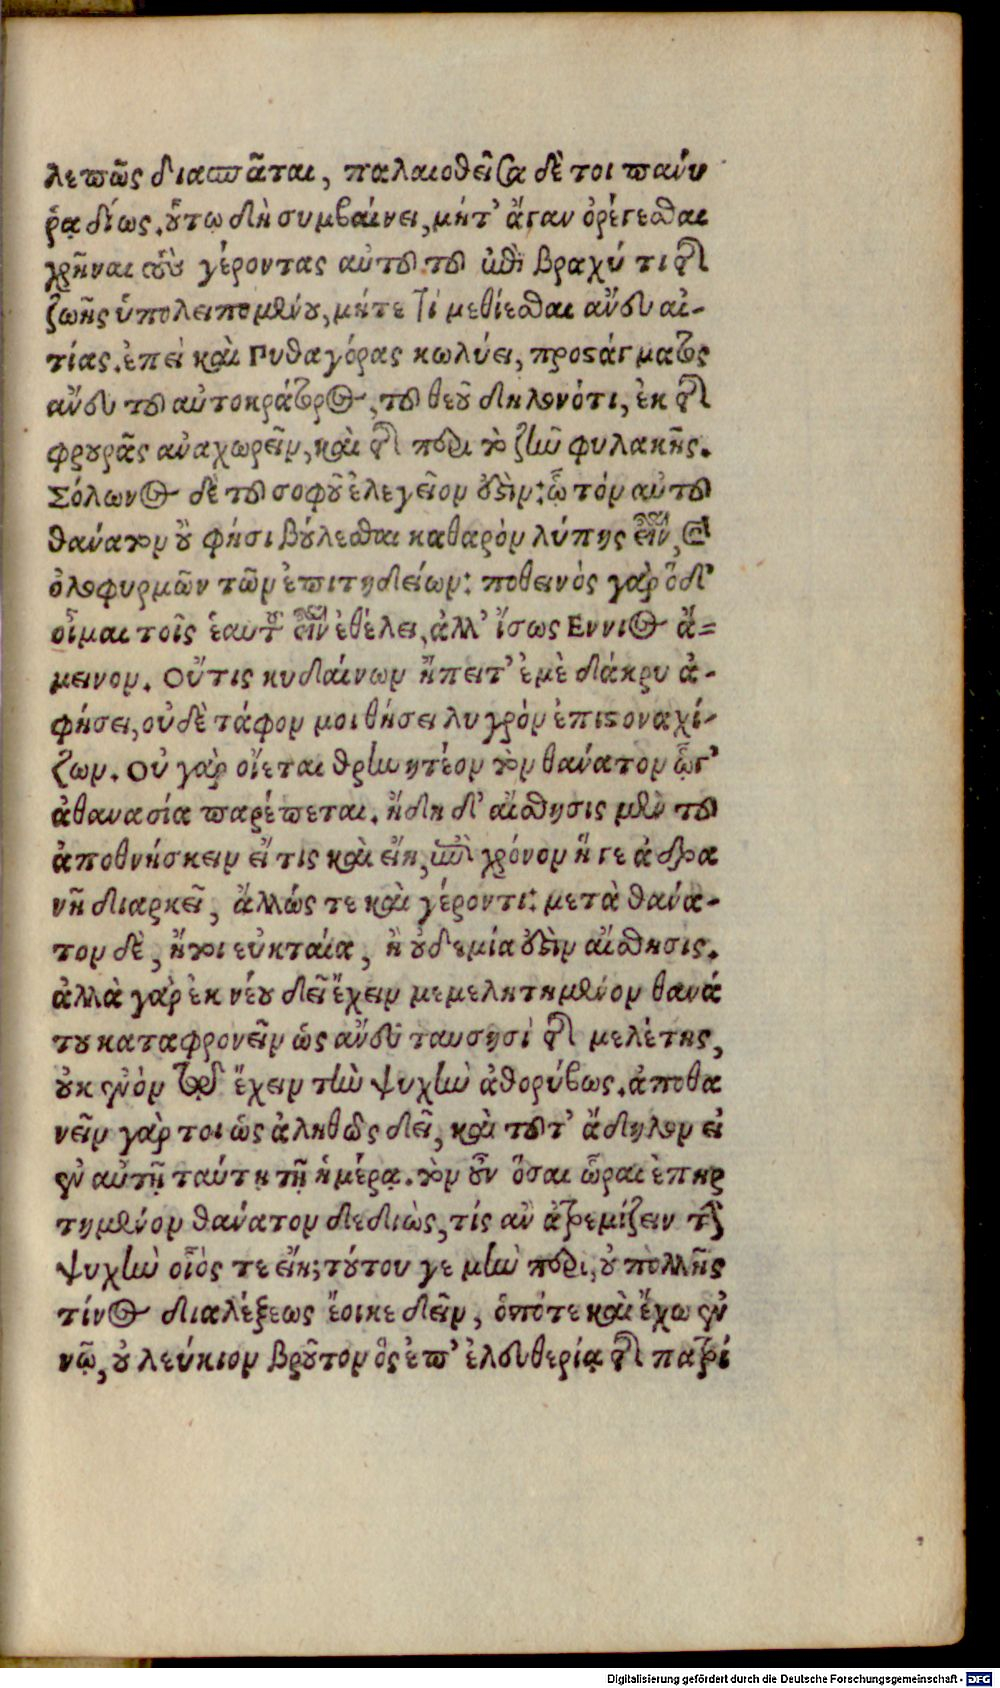 λεπῶς διασπᾶται, παλαιοθεῖσα δὲ τοι πάνυ
ῥᾳδίως. οὕτω δὴ συμβαίνει, μήτ' ἄγαν ὀρέγεσθαι
χρῆναι τοὺς γέροντας αὐτοῦ τοῦ ἐπὶ βραχύ τι τῆς
ζωῆς ὑπολειπομένου, μήτε τι μεθίεσθαι ἄνευ αἰ-
τίας. ἐπεὶ καὶ Πυθαγόρας κωλύει, προστάγματος
ἄνευ τοῦ αὐτοκράτορος, τοῦ θεοῦ δηλονότι, ἐκ τῆς
φρουρᾶς ἀναχωρεῖν, καὶ τῆς περὶ τὸ ζῆν φυλακῆς.
Σόλωνος δὲ τοῦ σοφοῦ ἐλεγεῖον οὐδὲν: ᾧ τὸν αὐτοῦ
θάνατον οὔ φησι βούλεσθαι καθαρὸν λύπης εἶναι, καὶ
ὀλοφυρμῶν τῶν ἐπιτηδείων: ποθεινὸς γὰρ ὅδ'
οἶμαι τοῖς ἑαυτοῦ εἶναι ἐθέλει, ἀλλ' ἴσως Εννιος ἄ=
μεινον. Οὔτις κυδαίνων ἤπειτ' ἐμὲ δάκρυ ἀ-
φήσει, οὐδὲ τάφον μοι θήσει λυγρὸν ἐπιστοναχί-
ζων. Οὐ γὰρ οἴεται θρηνητέον τὸν θάνατον ᾧγ'
ἀθανασία παρέπεται. ἤδη δ' αἴσθησις μὲν τοῦ
ἀποθνήσκειν εἴ τις καὶ εἴη, ἐπὶ χρόνον ἥ γε ἀδρα
νῆ διαρκεῖ, ἄλλώς τε καὶ γέροντι: μετὰ θάνα-
τον δὲ, ἤτοι εὐκταία, ἢ οὐδεμία οὐδὲν αἴσθησις.
ἀλλὰ γὰρ ἐκ νέου δεῖ ἔχειν μεμελητημένον θανά
του καταφρονεῖν ὡς ἄνευ ταυτησὶ τῆς μελέτης,
οὐκ ἐνὸν ἔχειν τὴν ψυχὴν ἀθορύβως. ἀποθα
νεῖν γὰρ τοι ὡς ἀληθῶς δεῖ, καὶ τοῦτ' ἄδηλον εἰ
ἐν αὐτῇ ταύτῃ τῇ ἡμέρᾳ. τὸν οὖν ὅσαι ὧραι ἐπηρ
τημένον θάνατον δεδιὼς, τίς ἂν ἀτρεμίζειν τὴν
ψυχὴν οἷός τε εἴη; τούτου γε μὴν περὶ, οὐ πολλῆς
τίνος διαλέξεως ἔοικε δεῖν, ὁπότε καὶ ἔχω ἐν
νῷ, οὐ λεύκιον βροῦτον ὃς ἐπ' ἐλευθερίᾳ τῆς πατρί
Digitalisierung gefördert durch die Deutsche Forschungsgemeinschaft - DFG